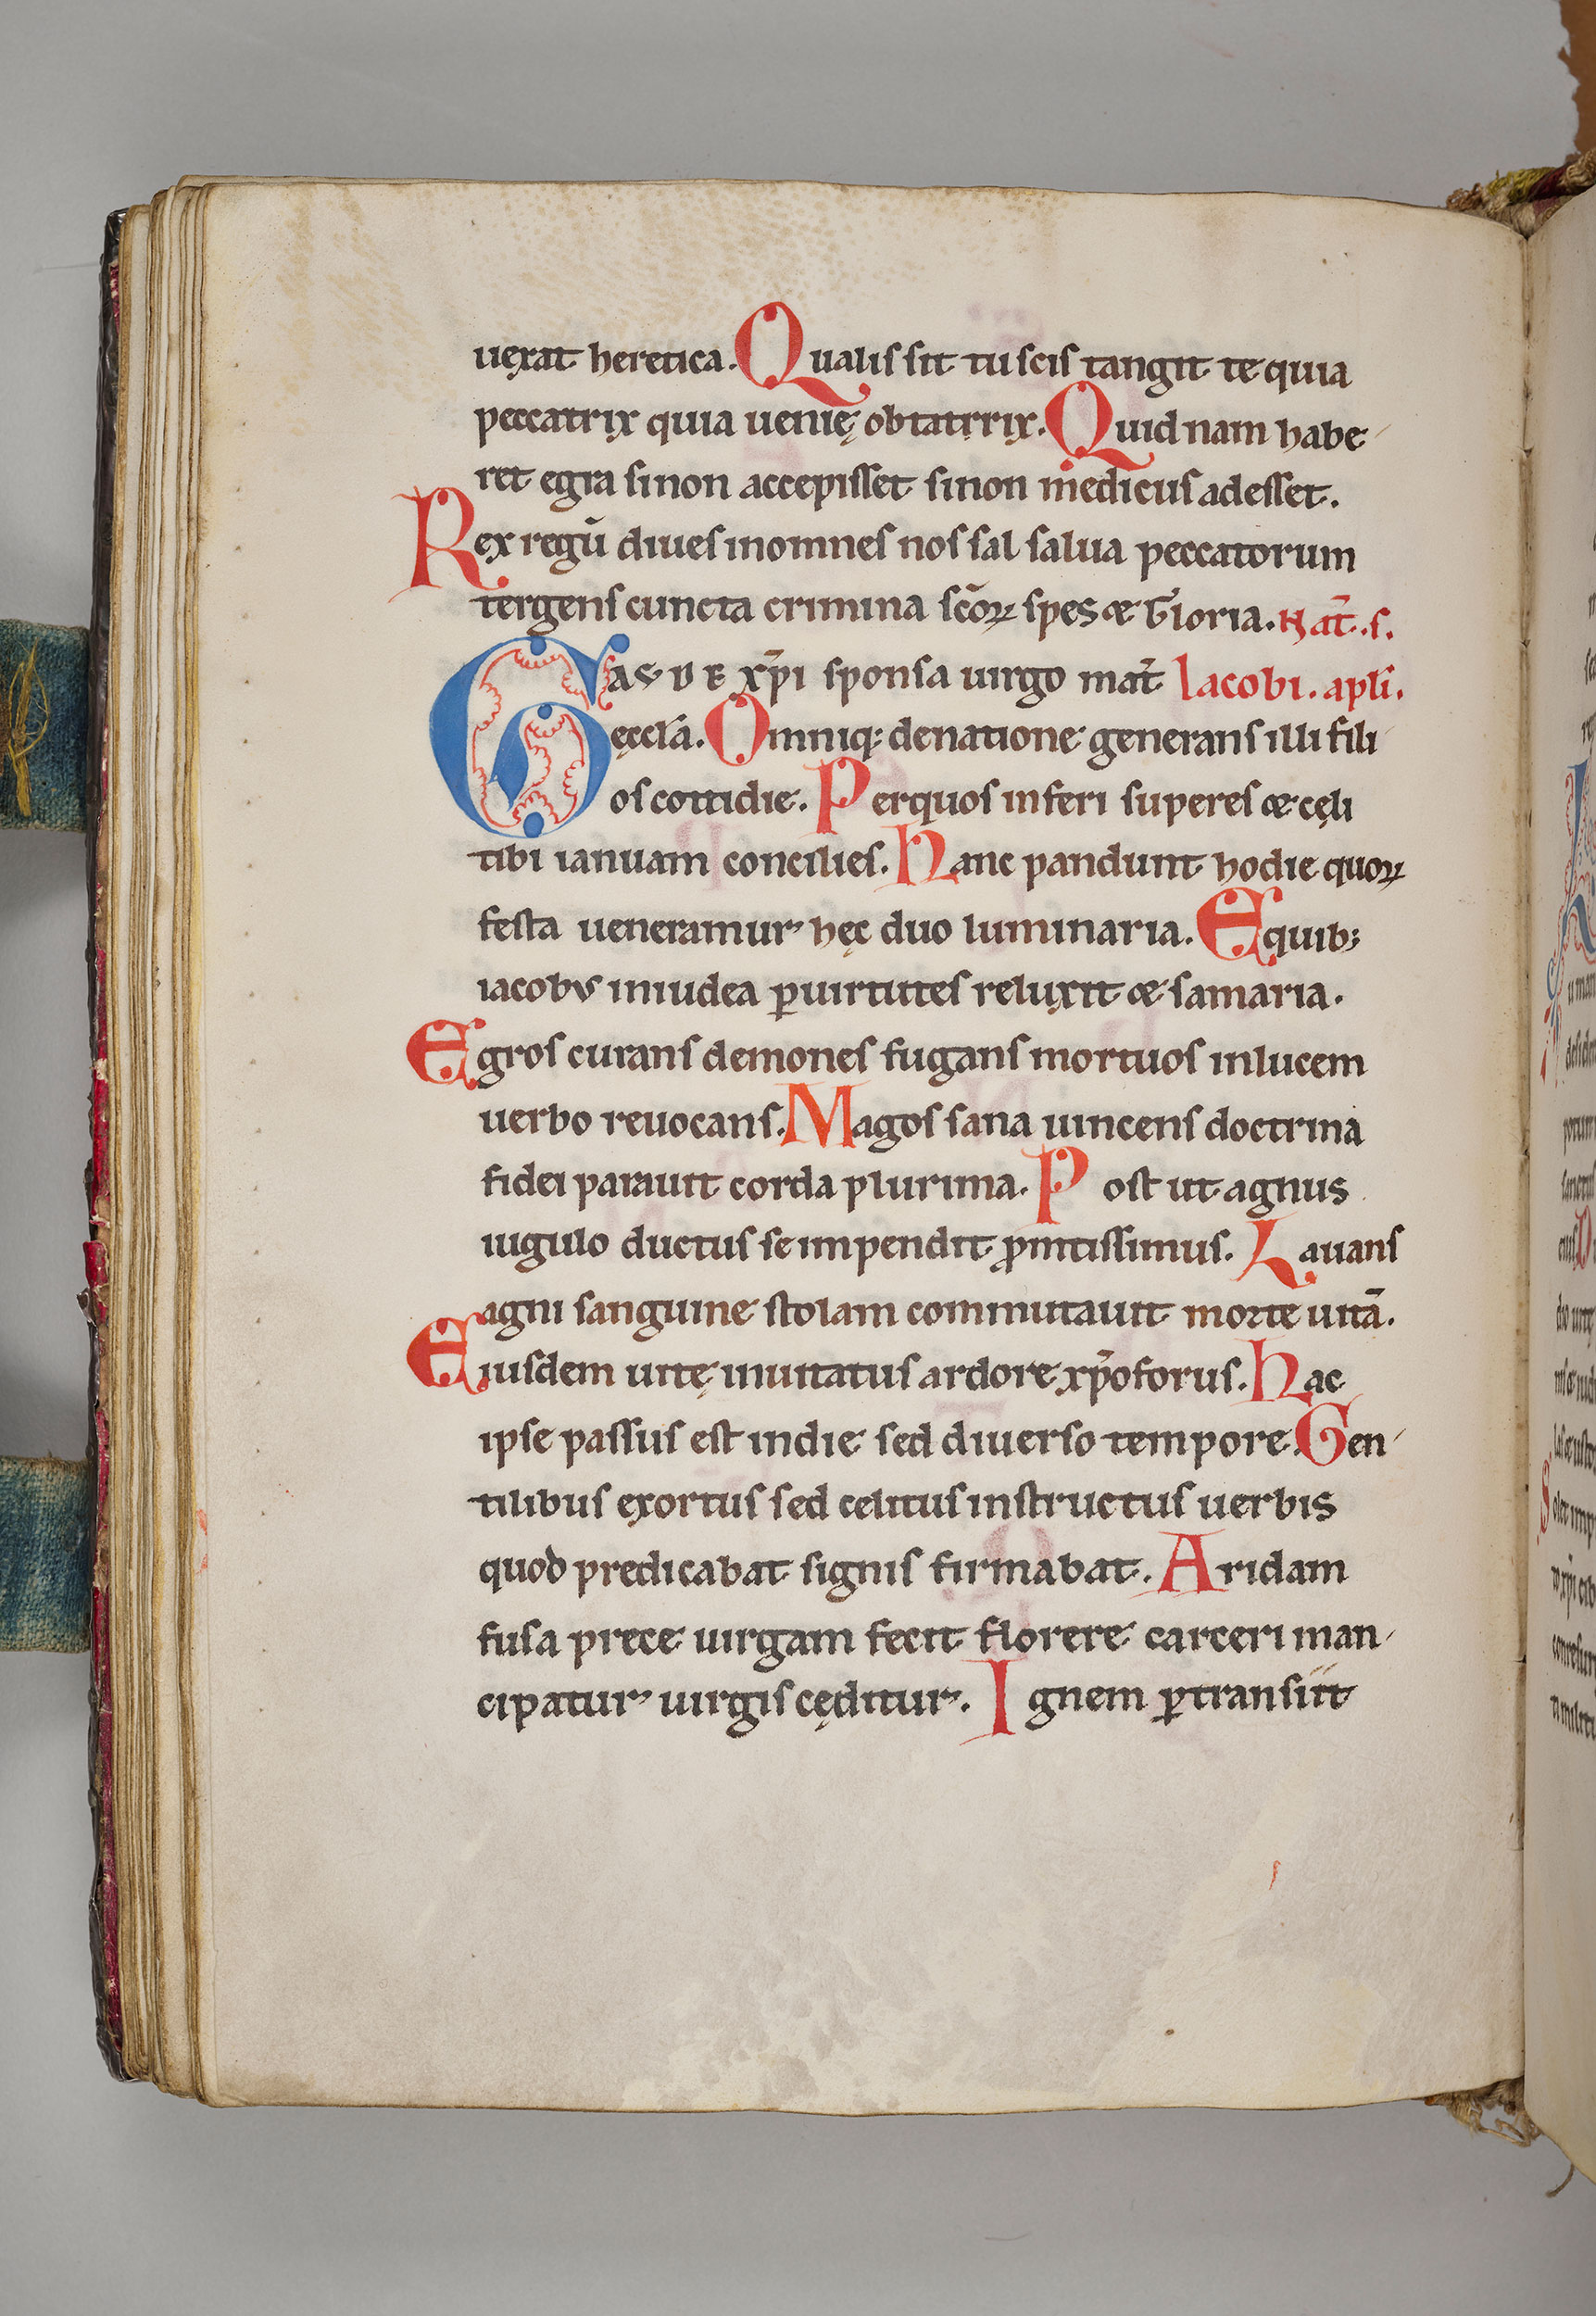 uexat heretica. Qualis sit tu scis tangit te quia
peccatrix quia uenię obtatrix. Quid nam habe
ret egra sinon accepisset sinon medicus adesset.
Rex regū diues inomnes nos sal salua peccatorum
tergens cuncta crimina scōꝝ spes & Gloria. Nat̄. s.
GAS V D E xp̄i sponsa uirgo mat̄ Iacobi. apl̄i.
ęccl̄a. Omniq; denatione generans illi fili
os cottidie. Perquos inferi superes & cęli
tibi ianuam concilies. Hanc pandunt hodie quoꝝ
festa ueneramur hęc duo luminaria. Equib;
iacobus iniudea ꝑuirtutes reluxit & samaria.
Egros curans demones fugans mortuos inlucem
uerbo reuocans. Magos sana uincens doctrina
fidei parauit corda plurima. Post ut agnus
iugulo ductus se impendit ꝓmtissimus. Lauans
agni sanguine stolam commutauit morte uitā.
Eiusdem uitę inuitatus ardore xp̄oforus. Hac
ipse passus est indie sed diuerso tempore. Gen
tilibus exortus sed celitus instructus uerbis
quod predicabat signis firmabat. Aridam
fusa prece uirgam fecit florere carceri man
cipatur uirgis cęditur. Ignem ꝑtransiit